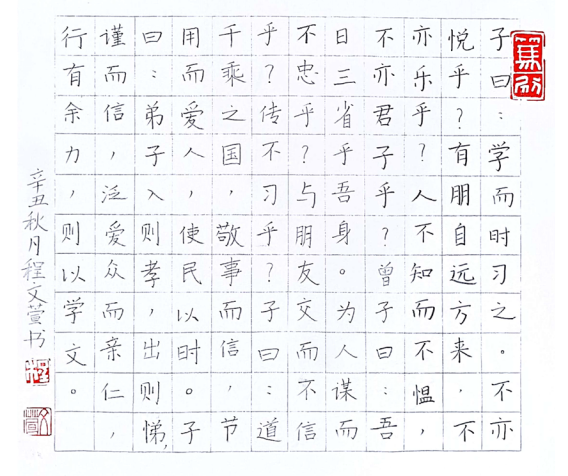 子曰：学而时习之。不亦
悦乎？有朋自远方来，不
亦乐乎？人不知而不愠，
不亦君子乎？曾子曰：吾
日三省乎吾身。为人谋而
不忠乎？与朋友交而不信
乎？传不习乎？子曰：道
千乘之国，敬事而信，节
用而爱人，使民以时。子
曰：弟子入则孝，出则悌，
谨而信，泛爱众而亲仁，
行有余力，则以学文。
辛丑秋月程文萱书
程
文萱